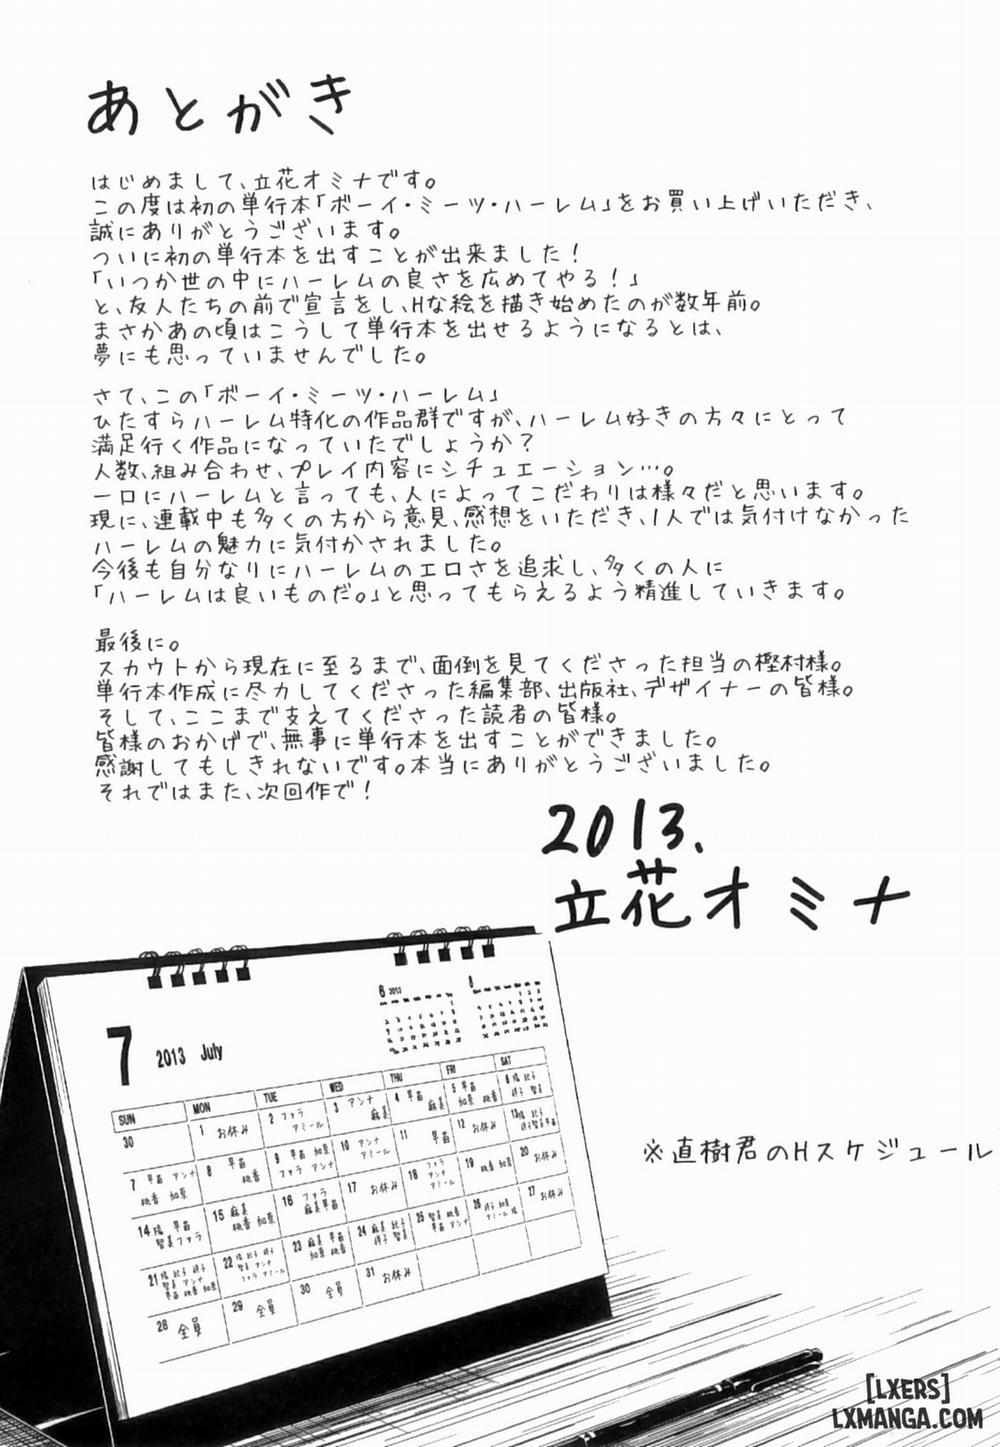 あとがき
はじめまして、立花オミナです。
この度は初の単行本「ボーイ・ミーツ・ハーレム」をお買い上げいただき、
誠にありがとうございます。
ついに初の単行本を出すことが出来ました!
「いつか世の中にハーレムの良さを広めてやる!」
と、友人たちの前で宣言をし、Hな絵を描き始めたのが数年前。
まさかあの頃はこうして単行本を出せるようになるとは、
夢にも思っていませんでした。
さて、この「ボーイ・ミーツ・ハーレム」
ひたすらハーレム特化の作品群ですが、ハーレム好きの方々にとって
満足行く作品になっていたでしょうか?
人数、組み合わせ、プレイ内容にシチュエーション…。
一口にハーレムと言っても、人によってこだわりは様々だと思います。
現に、連載中も多くの方から意見、感想をいただき、1人では気付けなかった
ハーレムの魅力に気付かされました。
今後も自分なりにハーレムのエロさを追求し、多くの人に
「ハーレムは良いものだ。」と思ってもらえるよう精進していきます。
最後に。
スカウトから現在に至るまで、面倒を見てくださった担当の樫村様。
単行本作成に尽力してくださった編集部、出版社、デザイナーの皆様。
そして、ここまで支えてくださった読者の皆様。
皆様のおかげで、無事に単行本を出すことができました。
感謝してもしきれないです。本当にありがとうございました。
それではまた、次回作で!
2013.
立花オミナ
6 2013
8
7 2013 July
SUN MON TUE WED THU FRI SAT
30
1 お休み
2 ファラ アミール
3 アンナ 麻美
4 早苗 麻美
5 早苗 加奈 桃香
6
7 早苗 アンナ 桃香 加奈
8 早苗 桃香
9 早苗 加奈 ファラ アンナ
10 アンナ アミール
11 早苗
12 お休み
13
14 早苗 智美 ファラ
15 麻美 桃香 加奈
16 ファラ 麻美 早苗
17 お休み
18 ファラ アンナ アミール
19 桃香 加奈
20 お休み
21
22
23 麻美 早苗 加奈 桃香
24
25
26
27 お休み
28 全員
29 全員
30 全員
31 お休み
※直樹君のHスケジュール
[LXERS]
LXMANGA.COM